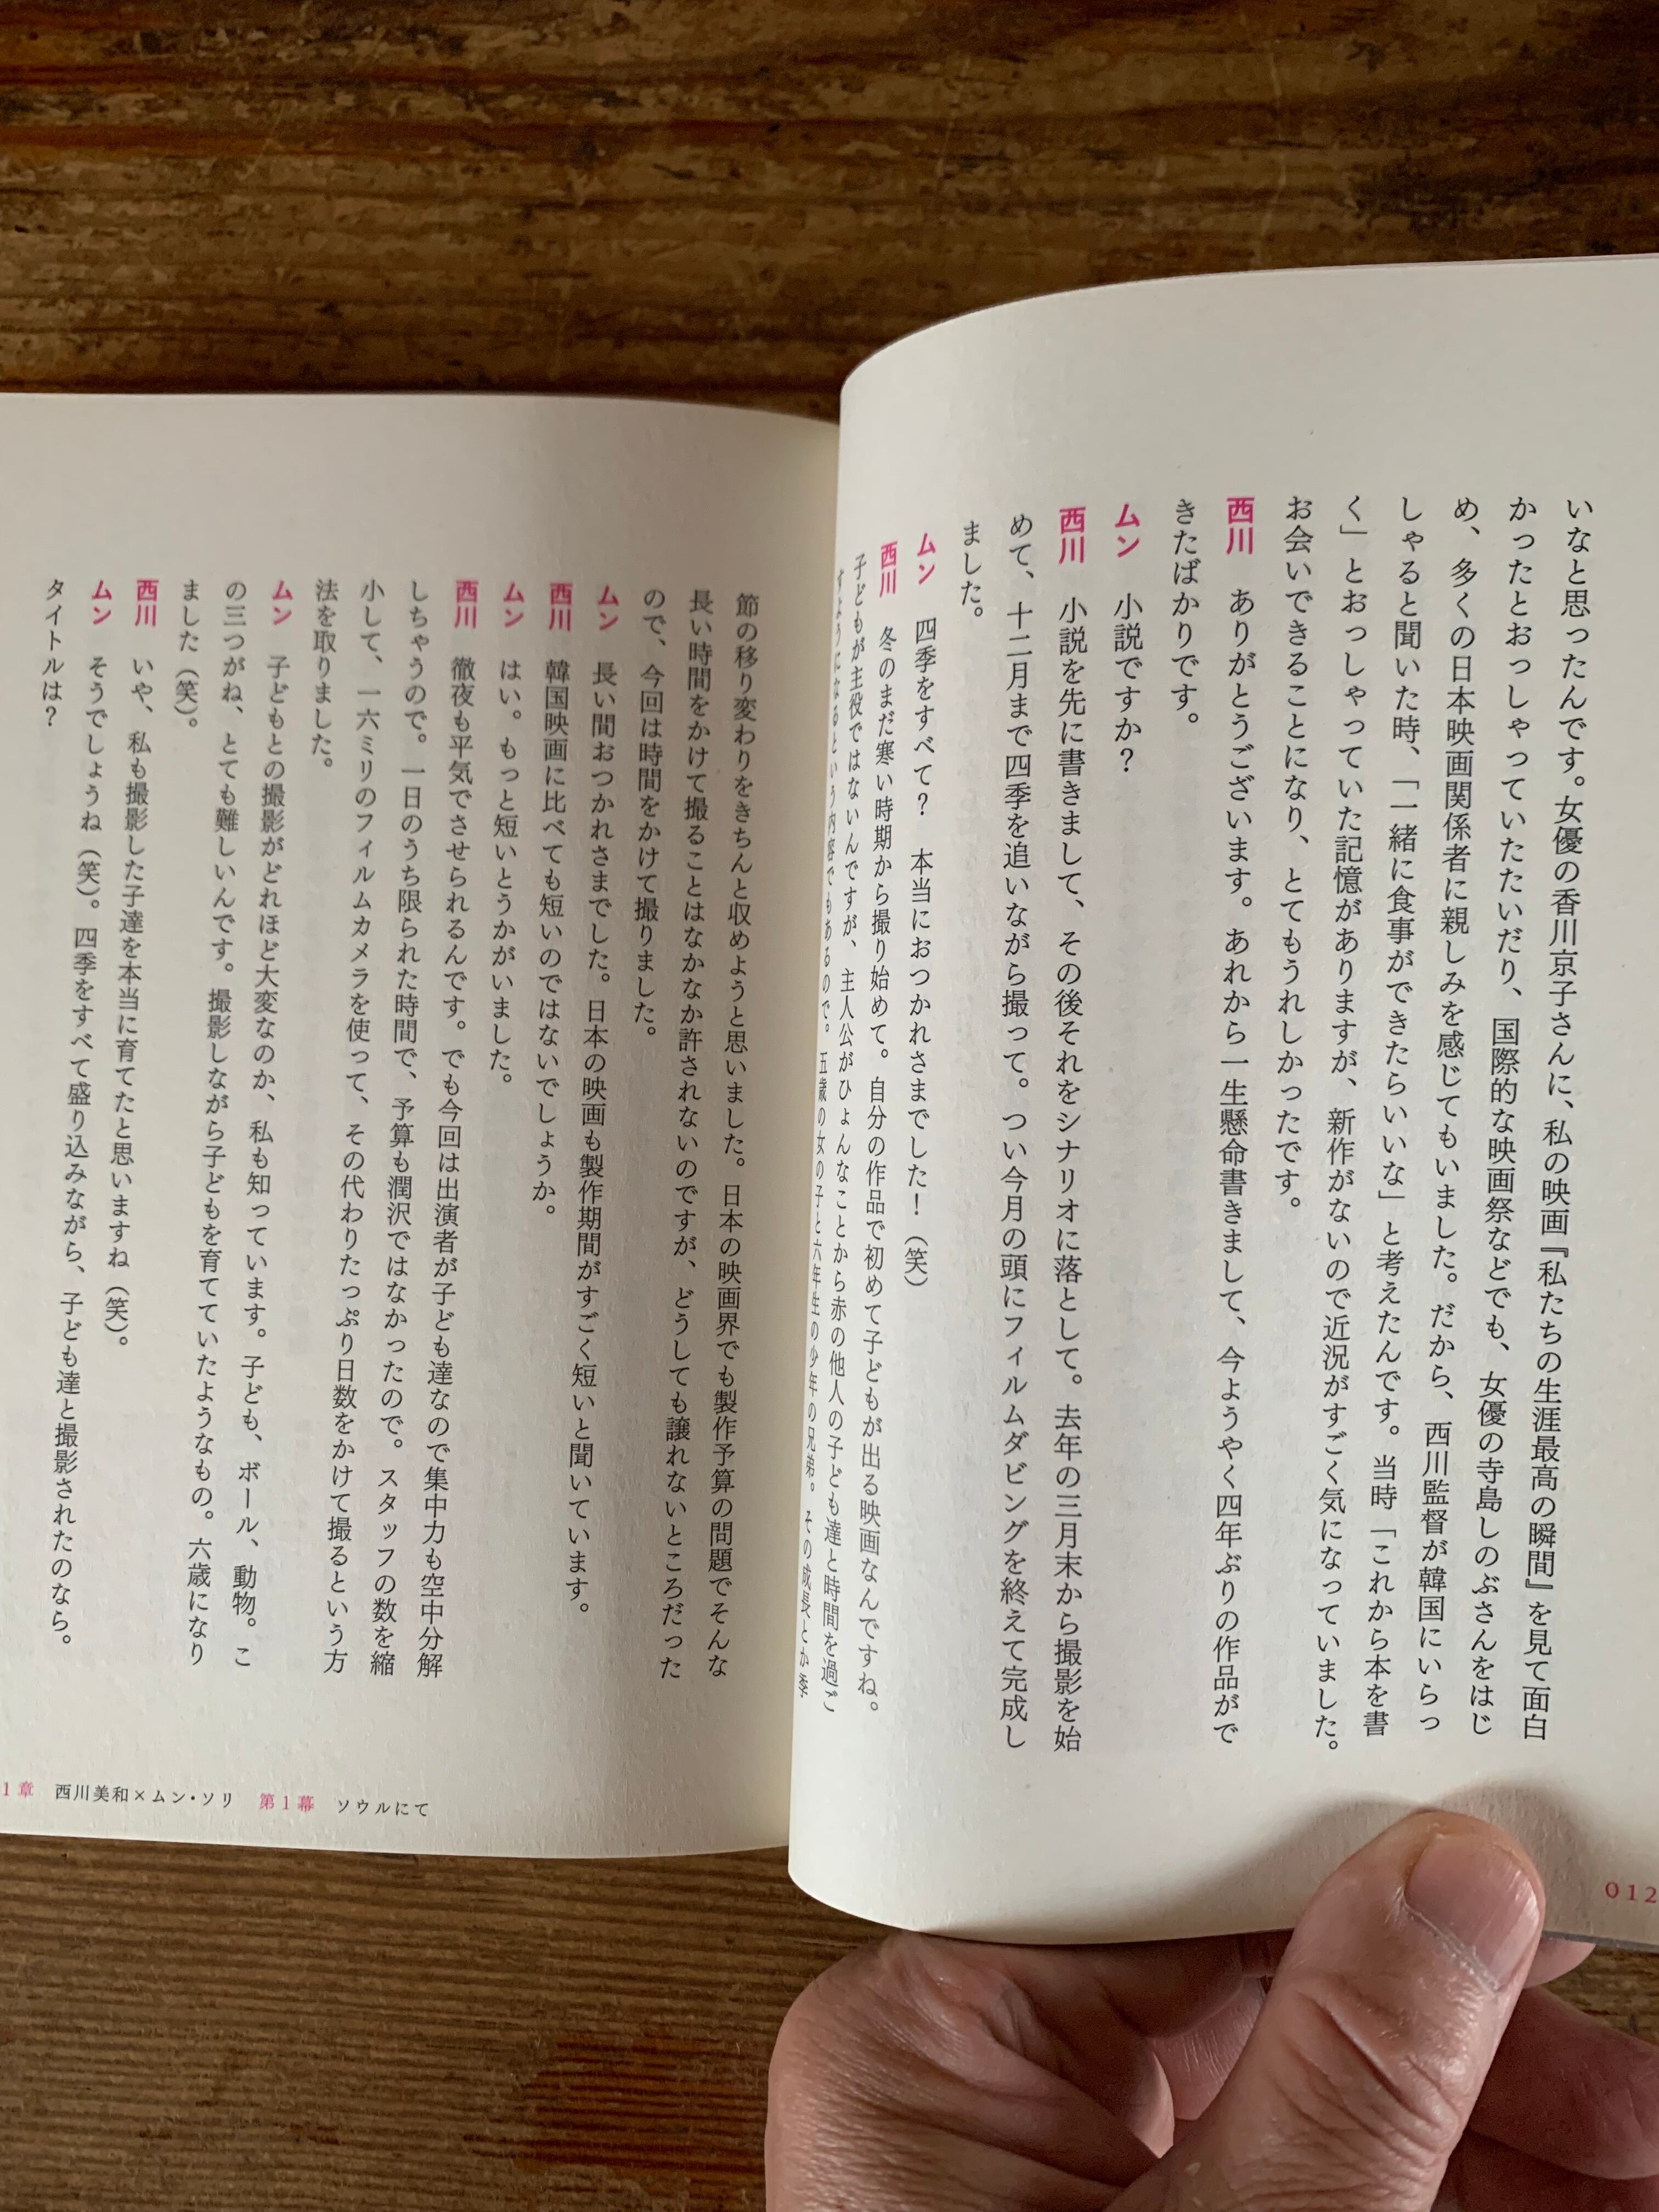 いなと思ったんです。女優の香川京子さんに、私の映画『私たちの生涯最高の瞬間』を見て面白
かったとおっしゃっていたたいだり、国際的な映画祭などでも、女優の寺島しのぶさんをはじ
め、多くの日本映画関係者に親しみを感じてもいました。だから、西川監督が韓国にいらっ
しゃると聞いた時、「一緒に食事ができたらいいな」と考えたんです。当時「これから本を書
く」とおっしゃっていた記憶がありますが、新作がないので近況がすごく気になっていました。
お会いできることになり、とてもうれしかったです。
西川 ありがとうございます。あれから一生懸命書きまして、今ようやく四年ぶりの作品がで
きたばかりです。
ムン 小説ですか？
西川 小説を先に書きまして、その後それをシナリオに落として。去年の三月末から撮影を始
めて、十二月まで四季を追いながら撮って。つい今月の頭にフィルムダビングを終えて完成し
ました。
ムン 四季をすべて？ 本当におつかれさまでした！（笑）
西川 冬のまだ寒い時期から撮り始めて。自分の作品で初めて子どもが出る映画なんですね。
子どもが主役ではないんですが、主人公がひょんなことから赤の他人の子ども達と時間を過ご
すようになるという内容でもあるので。五歳の女の子と六年生の少年の兄弟。その成長とか季
節の移り変わりをきちんと収めようと思いました。日本の映画界でも製作予算の問題でそんな
長い時間をかけて撮ることはなかなか許されないのですが、どうしても譲れないところだった
ので、今回は時間をかけて撮りました。
ムン 長い間おつかれさまでした。日本の映画も製作期間がすごく短いと聞いています。
西川 韓国映画に比べても短いのではないでしょうか。
ムン はい。もっと短いとうかがいました。
西川 徹夜も平気でさせられるんです。でも今回は出演者が子ども達なので集中力も空中分解
しちゃうので。一日のうち限られた時間で、予算も潤沢ではなかったので。スタッフの数を縮
小して、一六ミリのフィルムカメラを使って、その代わりたっぷり日数をかけて撮るという方
法を取りました。
ムン 子どもとの撮影がどれほど大変なのか、私も知っています。子ども、ボール、動物。こ
の三つがね、とても難しいんです。撮影しながら子どもを育てていたようなもの。六歳になり
ました（笑）。
西川 いや、私も撮影した子達を本当に育てたと思いますね（笑）。
ムン そうでしょうね（笑）。四季をすべて盛り込みながら、子ども達と撮影されたのなら。
タイトルは？
1章 西川美和×ムン・ソリ 第1幕 ソウルにて
012